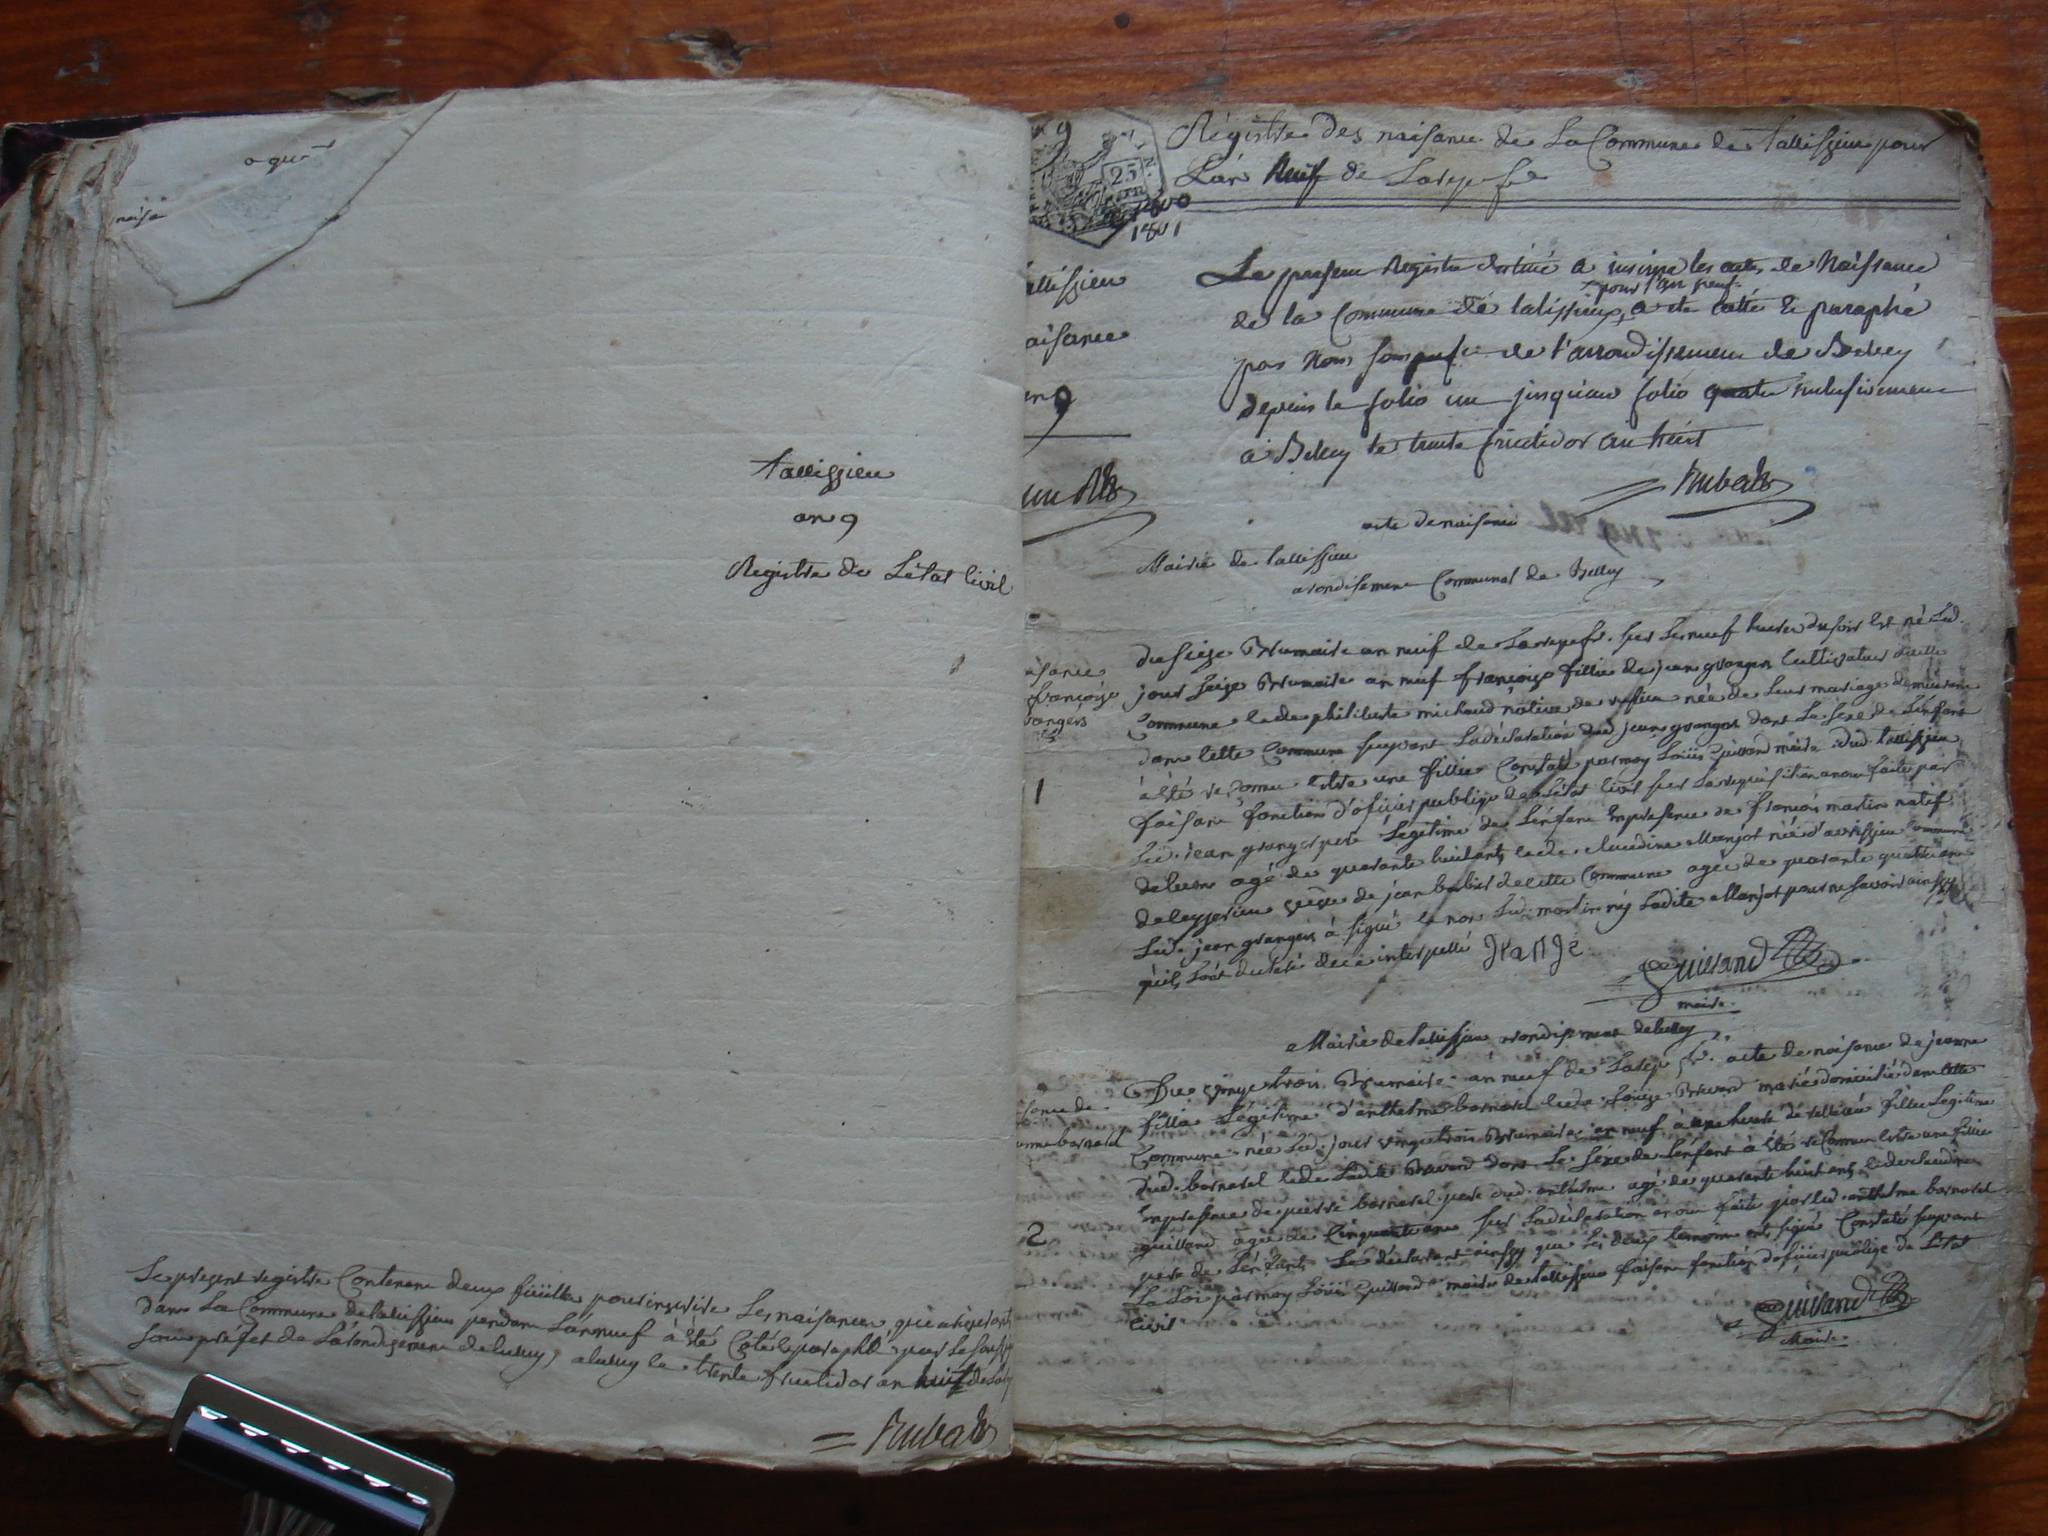 a que
naisa
tallissieu
an 9
Registre de L'état Civil
Le present registre Contenant deux feüille pour inscrire Les naisances que ariveront
dans La Commune de tallissieu pendant L'an neuf à été Coté et paraphé par Le sous
sous préfet de L'arondisement de belley, a belley le trente fructidor an huit de La
Rubat
an 9
25
1800
1801
allissieu
aisance
an 9
un
Régistre des naisance de La Commune de tallissieu pour
L'an Neuf de La rep
Le présent Registre destiné à inscrire les actes de Naissance
pour l'an neuf
de la Commune de talissieu, a été cotté & paraphé
par Nous sous prefet de l'arrondissement de Belley
depuis le folio un jusqu'au folio quatre inclusivement
à Belley le trente fructidor an huit
Rubat
acte de naisance
Mairie de tallissieu
arondisement Communal de Belley
isance
françoise
rangers
1
du seize Brumaire an neuf de La rep. sur Les neuf heures du soir Est né Led.
jour seize Brumaire an neuf françoise fillie de jean grangers Cultivateur de cette
Commune et de philiberte michaud native de née de Leur mariage demeurant
dans Cette Commune suyvant La déclaration dud. jean grangers dont Le sexe de L'enfant
à été reConnu Estre une fillie Constaté par moy Loüis Guilland maire dud. tallissieu
faisant fonction d'oficier publiqe de L'état Civil sur La requisition a nous faite par
Led. jean granger pere Légitime de L'enfant En presence de françois martin natif
de agé de quarante huit ans et de claudine Manjot née d'avrissieu Commune
de veuve de jean barbier de cette Commune agée de quarante quatre ans
Led. jean grangers à signé et non Led. martin ny Ladite Manjot pour ne savoir ainsy
qu'ils L'ont declaré de ce interpellé
Guilland
maire.
Mairie de tallissieu arondisement de belley
sance de
anne bornarel
2
Du vingt trois Brumaire an neuf de La rep. acte de naisance de jeanne
fillie Légitime d'anthelme bornarel et de Loüise Brevard mariés domicilié dans Cette
Commune née Led. jour vingt trois Brumaire an neuf à une heure de fillie Legitime
Dud. bornarel et de Ladite Brevard dont Le sexe de L'enfant à été reConnu Estre une fillie
En presence de pierre bornarel pere dud. anthelme agé de quarante huit ans et de claudine
guilland agée de Cinquante ans sur La déclaration à nous faite par Led. anthelme bornarel
pere de L'enfant Le déclarant ainsy que Les deux temoins ont signé Constaté suyvant
La Loi par moy Loüis Guilland maire de tallissieu faisant fonction d'oficier publiqe de L'état
Civil
Guilland
Maire.